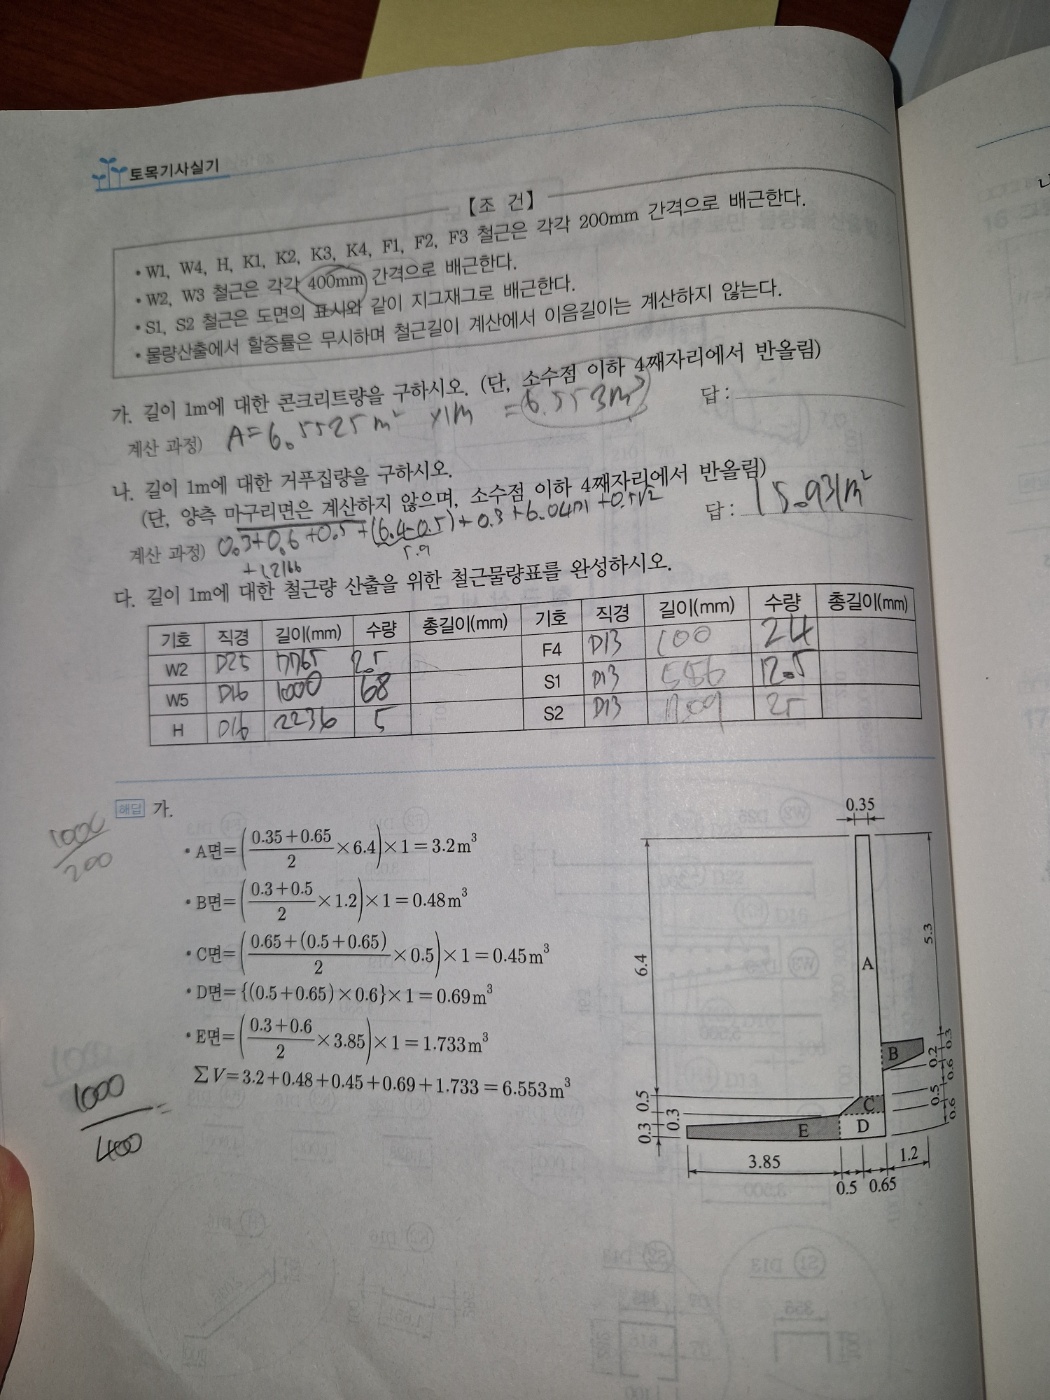 토목기사실기
【조 건】
• W1, W4, H, K1, K2, K3, K4, F1, F2, F3 철근은 각각 200mm 간격으로 배근한다.
• W2, W3 철근은 각각 400mm 간격으로 배근한다.
• S1, S2 철근은 도면의 표시와 같이 지그재그로 배근한다.
• 물량산출에서 할증률은 무시하며 철근길이 계산에서 이음길이는 계산하지 않는다.
가. 길이 1m에 대한 콘크리트량을 구하시오. (단, 소수점 이하 4째자리에서 반올림)
계산 과정) A=6.5525m² ×1m =6.553m³ 답 :
나. 길이 1m에 대한 거푸집량을 구하시오.
(단, 양측 마구리면은 계산하지 않으며, 소수점 이하 4째자리에서 반올림)
계산 과정) 0.3+0.6+0.5+(6.4-0.5)+0.3+6.0471+0.5√2 답 : 15.931m²
5.9
+1.2166
다. 길이 1m에 대한 철근량 산출을 위한 철근물량표를 완성하시오.
기호 직경 길이(mm) 수량 총길이(mm) 기호 직경 길이(mm) 수량 총길이(mm)
W2 D25 7765 2.5 F4 D13 100 24
W5 D16 1000 68 S1 D13 556 12.5
H D16 2236 5 S2 D13 1709 25
해답 가.
1000/200
• A면=(0.35+0.65/2×6.4)×1=3.2m³
• B면=(0.3+0.5/2×1.2)×1=0.48m³
• C면=(0.65+(0.5+0.65)/2×0.5)×1=0.45m³
• D면={(0.5+0.65)×0.6}×1=0.69m³
• E면=(0.3+0.6/2×3.85)×1=1.733m³
ΣV=3.2+0.48+0.45+0.69+1.733=6.553m³
1000/400 =
0.35
6.4
5.3
A
B
0.3
0.2
0.6
0.5
0.6
C
D
E
0.5
0.3
0.3
3.85
0.5
0.65
1.2